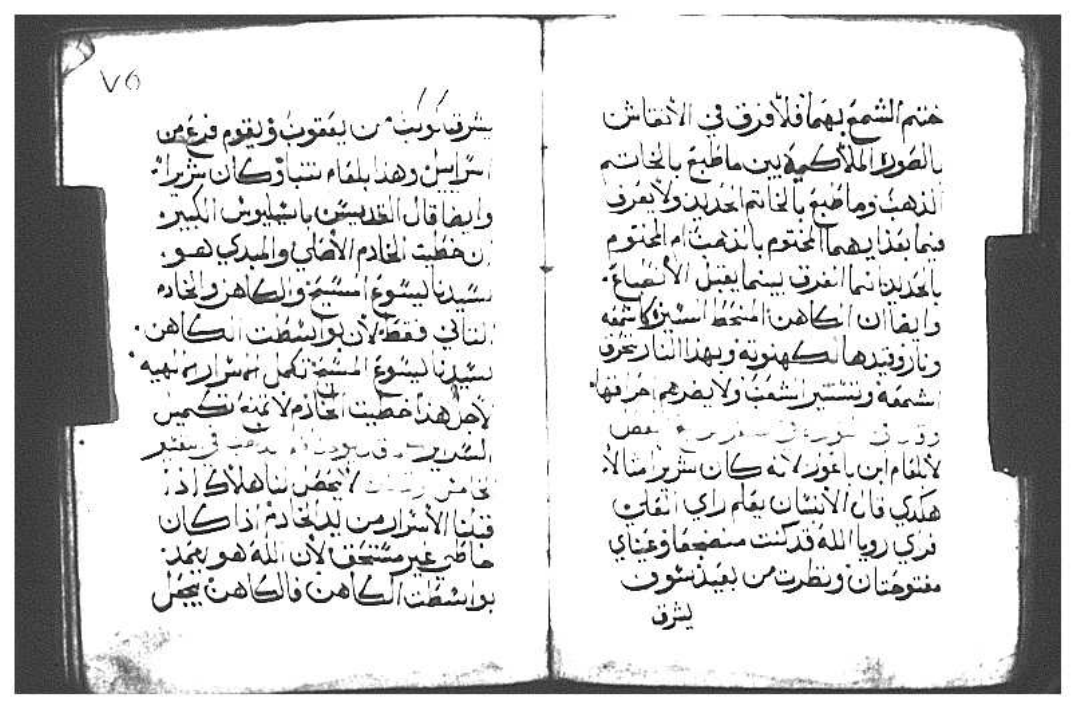 ختم الشمع بهما فلا فرق في الانتقاش
بالصورة الملاكمية بين ما طبع بالخاتم
الذهب وما طبع بالخاتم الحديد ولا يعرف
فيما بعد ايهما المختوم بالذهب ام المختوم
بالحديد انما الفرق بينما يقبل الانصباغ.
وايضا ان الكاهن المنحط السيرة كاشمعه
ونار وقيدها الكهنوتة وبهذا النار تحرق
الشمعة وتستنير الشعب ولا يضرهم احراقها.
في بعض
لابلعام ابن باعور لانه كان شريرا مثالا
هكدي قال الانسان يعلم راي القلب
فري رويا الله قد كنت منضجعا وعيناي
مفتوحتان ونظرت من بعيد سوف
يشرق
٧٥
يشرق كوكب من يعقوب ويقوم فرع من
اسراييل وهدا بلعام تنبا وكان شريرا.
وايضا قال القديس باسيليوس الكبير
ان خطيت الخادم الاصلي والمبدي هو.
سيدنا يسوع المسيح والكاهن والخادم
التاني فقط لان بواسطت الكاهن.
سيدنا يسوع المسيح تكمل الاسرار الالهيه.
لاجل هدا خطيت الخادم لا تمنع تكميل
السر في سفر
الخامس لا يحصل لنا هلاك اذا
قبلنا الاسرار من يد الخادم اذا كان
خاطي غير مستحق لان الله هو يعمد
بواسطت الكاهن فالكاهن يجعل